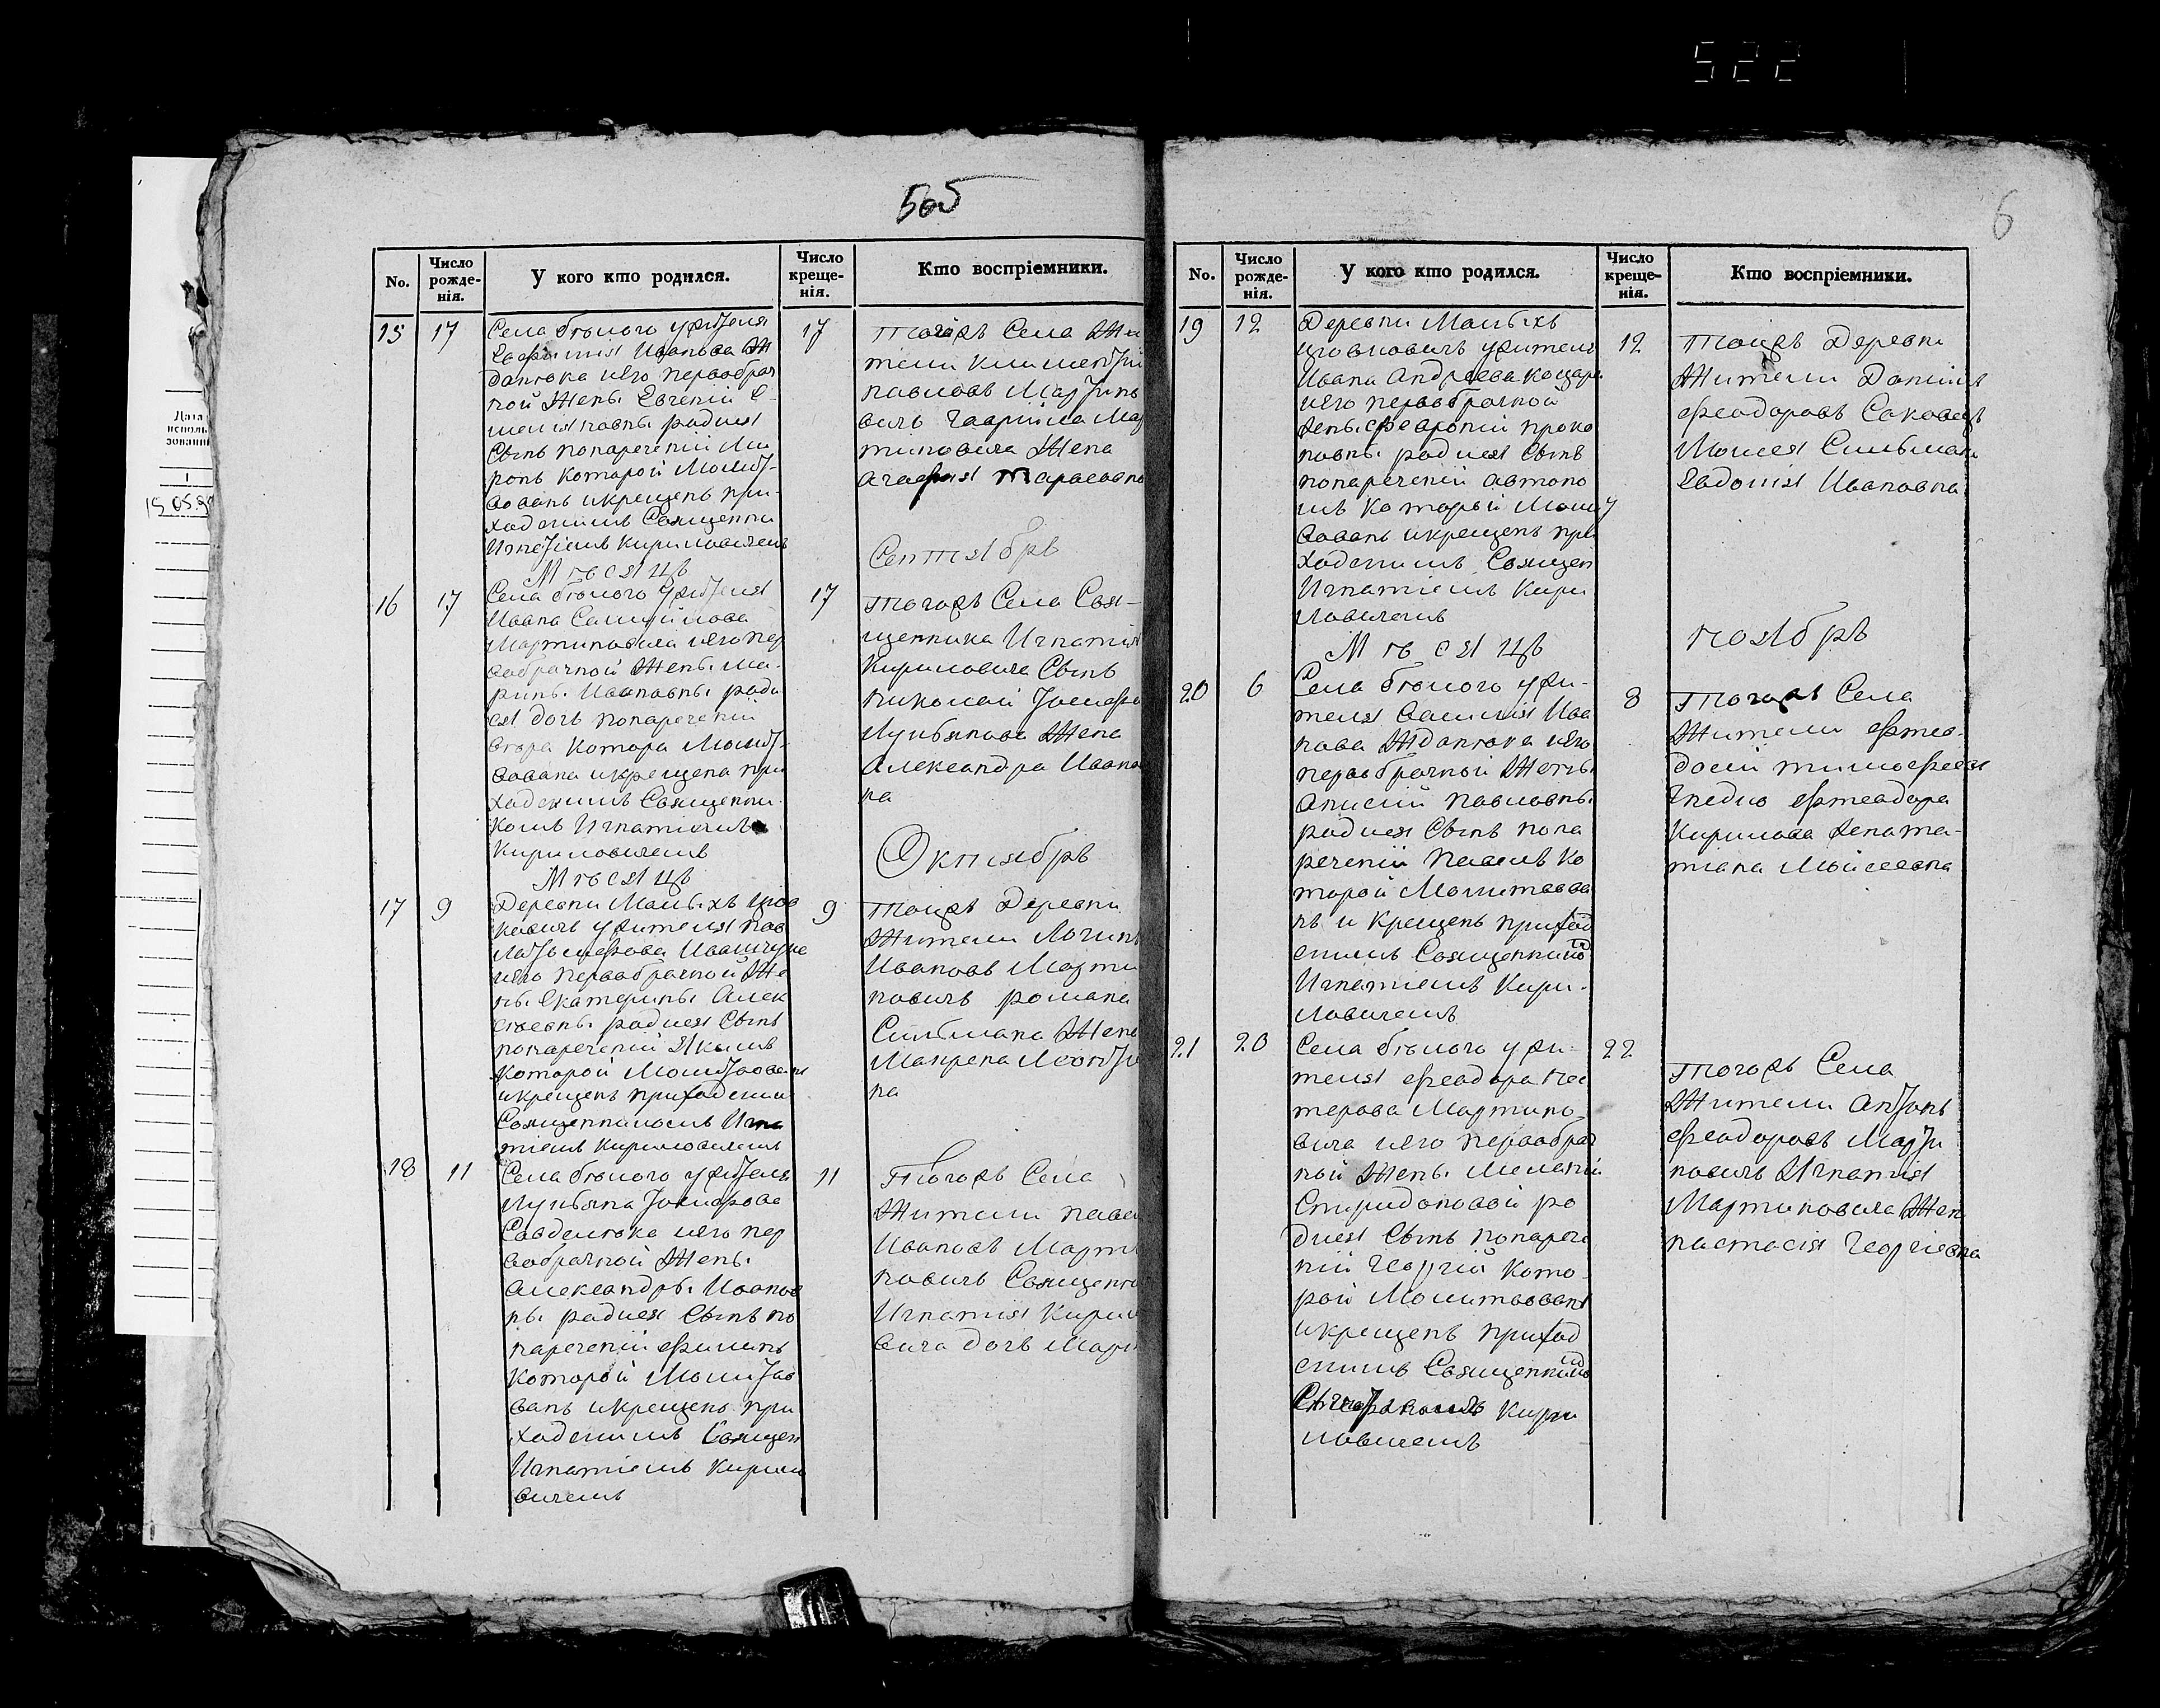 522
565
6
No.
Число рожде-нія.
У кого кто родился.
Число креще-нія.
Кто воспріемники.
15
17
Села бѣлого
Иванова
его первобрач
ной жены Евгеніи
родился
Сынъ нонареченій Ми
ронъ которой молит-
вованъ икрещенъ при-
ходскимъ Священни
Кириловичемъ
Мѣсяцъ
17
тогожъ Села жи
тели Климентій
павловъ Мартино
вичъ Гавріила Мар
тиновича жена
агафия тарасовна
Сентябрь
16
17
Села бѣлого
Ивана Самуйлова
Мартиновича иего пер
вобрачной жены Ма-
рины Ивановны роди
ся дочь нонареченій
котора молит-
вована икрещена при
ходскимъ Священни
комъ Игнатіемъ
Кириловичемъ
Мѣсяцъ
17
тогожъ Села Свя-
щенника Игнатія
Кириловича Сынъ
николай
Лукьянова жена
Александра Иванов
на
Октябрь
17
9
Деревни
жителя пав
иего первобрачной же
ны екатерины Алек
сѣевны родился Сынъ
нонареченій Якимъ
которой молитвованъ
икрещенъ приходским
Священникомъ Игна
тіемъ Кириловичемъ
9
тоижъ Деревни
жители Логинъ
Ивановъ Марти
новичъ романа
Сильмана жена
Макрена
на
18
11
Села бѣлого
Лукьяна
иего пер
вобрачной жены
александры Иванов
ны родился Сынъ но
нареченій филипъ
которой молитво
ванъ икрещенъ при
ходскимъ Священ
Игнатіемъ Кирило
вичемъ
11
тогожъ Села
жители паве
Ивановъ Март
новичъ Священн
Игнатія Кирило
вича дочь Мари
No.
Число рожде-нія.
У кого кто родился.
Число креще-нія.
Кто воспріемники.
19
12
Деревни
жителя
Ивана Андреева
иего первобрачной
жены февроніи проко
повны родился Сынъ
нонареченій автоно
мъ которой молит
вованъ икрещенъ при
ходскимъ Священ
Игнатіемъ Кири
ловичемъ
Мѣсяцъ
12
тоижъ Деревни
жители Даніилъ
феодоровъ Саковецъ
Моисея Сильмана
Евдокія Ивановна
ноябрь
20
6
Села бѣлого жи-
теля василія Ива
нова иего
первобрачной жены
анисіи павловны
родился Сынъ нона
реченій павелъ ко
торой молитвова
нъ и крещенъ приход
скимъ Священником
Игнатіемъ Кири-
ловичемъ
8
тогожъ Села
жители фтео-
досій тимофеев
фтеодора
Кирилова жена та-
тиана Мойсеевна
21
20
Села бѣлого жи-
теля феодора нес
терова Мартино-
вича иего первобрач
ной жены Меланіи
Спиридоновой ро
дился Сынъ нонарече
ній Георгій кото-
рой молитвованъ
икрещенъ приход
скимъ Священником
Кири
ловичемъ
22
тогожъ Села
жители антонъ
феодоровъ Марти
новичъ Игнатія
Мартиновича жен
настасія Георгіевна
Дата
исполь-
зования
1